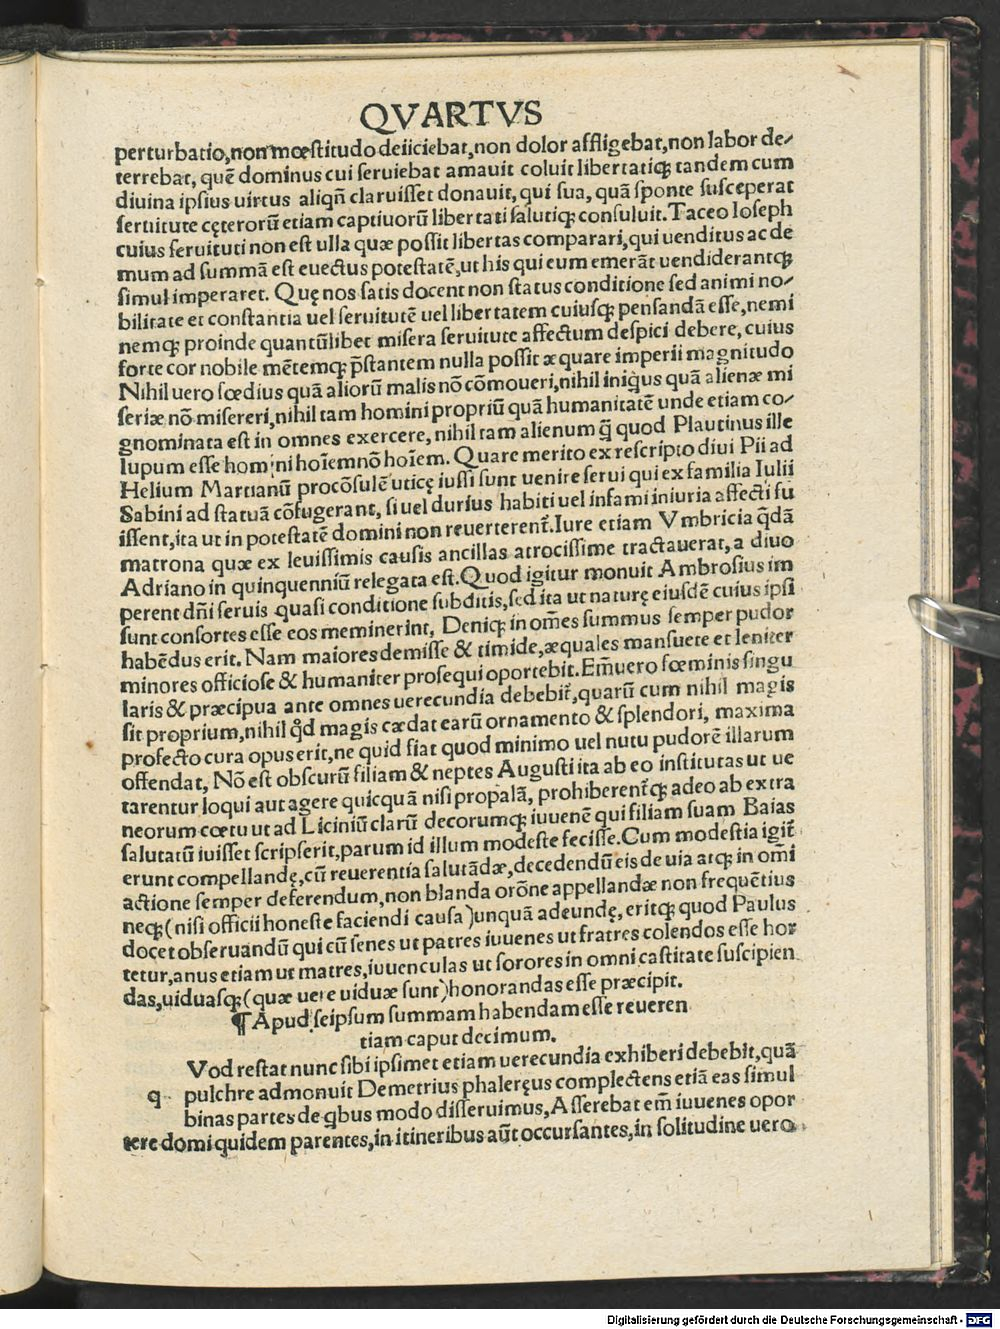 QVARTVS
perturbatio,non mœstitudo deiiciebat,non dolor affligebat,non labor de⸗
terrebat, quē dominus cui seruiebat amauit coluit libertatiqꝫ tandem cum
diuina ipsius uirtus aliqñ claruisset donauit, qui sua, quā sponte susceperat
seruitute cęterorū etiam captiuorū libertati salutiqꝫ consuluit. Taceo Ioseph
cuius seruituti non est ulla quæ possit libertas comparari,qui uenditus ac de
mum ad summā est euectus potestatē,ut his qui eum emerāt uendiderantqꝫ
simul imperaret. Quę nos satis docent non status conditione sed animi no⸗
bilitate et constantia uel seruitutē uel libertatem cuiusqꝫ pensandā esse,nemi
nemqꝫ proinde quantūlibet misera seruitute affectum despici debere, cuius
forte cor nobile mētemqꝫ p̄stantem nulla possit æquare imperii magnitudo
Nihil uero fœdius quā aliorū malis nō cōmoueri,nihil iniq̇us quā alienæ mi
seriæ nō misereri,nihil tam homini propriū quā humanitatē unde etiam co⸗
gnominata est in omnes exercere, nihil tam alienum q̄ quod Plautinus ille
lupum esse homini hoīem nō hoīem. Quare merito ex rescripto diui Pii ad
Helium Martianū procōsulē uticę iussi sunt uenire serui qui ex familia Iulii
Sabini ad statuā cōfugerant, si uel durius habiti uel infami iniuria affecti fu
issent,ita ut in potestatē domini non reuerterent᷑. Iure etiam Vmbricia q̄dā
matrona quæ ex leuissimis causis ancillas atrocissime tractauerat, a diuo
Adriano in quinquenniū relegata est. Quod igitur monuit Ambrosius im
perent dn̄i seruis quasi conditione subditis,sed ita ut naturę eiusdē cuius ipsi
sunt consortes esse eos meminerint, Deniqꝫ in om̄es summus semper pudor
habēdus erit. Nam maiores demisse & timide,æquales mansuete et leniter
minores officiose & humaniter prosequi oportebit. Em̄uero fœminis singu
laris & præcipua ante omnes uerecundia debebit᷑,quarū cum nihil magis
sit proprium,nihil qd̄ magis cædat earū ornamento & splendori, maxima
profecto cura opus erit,ne quid fiat quod minimo uel nutu pudorē illarum
offendat, Nō est obscurū filiam & neptes Augusti ita ab eo institutas ut ue
tarentur loqui aut agere quicquā nisi propalā, prohiberent᷑qꝫ adeo ab extra
neorum cœtu ut ad Liciniū clarū decorumqꝫ iuuenē qui filiam suam Baias
salutatū iuisset scripserit,parum id illum modeste fecisse. Cum modestia igit᷑
erunt compellandę,cū reuerentia salutādæ,decedendū eis de uia atqꝫ in om̄i
actione semper deferendum,non blanda orōne appellandæ non frequētius
neqꝫ (nisi officii honeste faciendi causa) unquā adeundę,eritqꝫ quod Paulus
docet obseruandū qui cū senes ut patres iuuenes ut fratres colendos esse hor
tetur,anus etiam ut matres,iuuenculas ut sorores in omni castitate suscipien
das,uiduasqꝫ (quæ uere uiduæ sunt) honorandas esse præcipit.
¶ Apud seipsum summam habendam esse reueren
tiam caput decimum.
Vod restat nunc sibi ipsimet etiam uerecundia exhiberi debebit,quā
q pulchre admonuit Demetrius phaleręus complectens etiā eas simul
binas partes de qbus modo disseruimus, Asserebat em̄ iuuenes opor
tere domi quidem parentes,in itineribus aūt occursantes,in solitudine uero
Digitalisierung gefördert durch die Deutsche Forschungsgemeinschaft - DFG